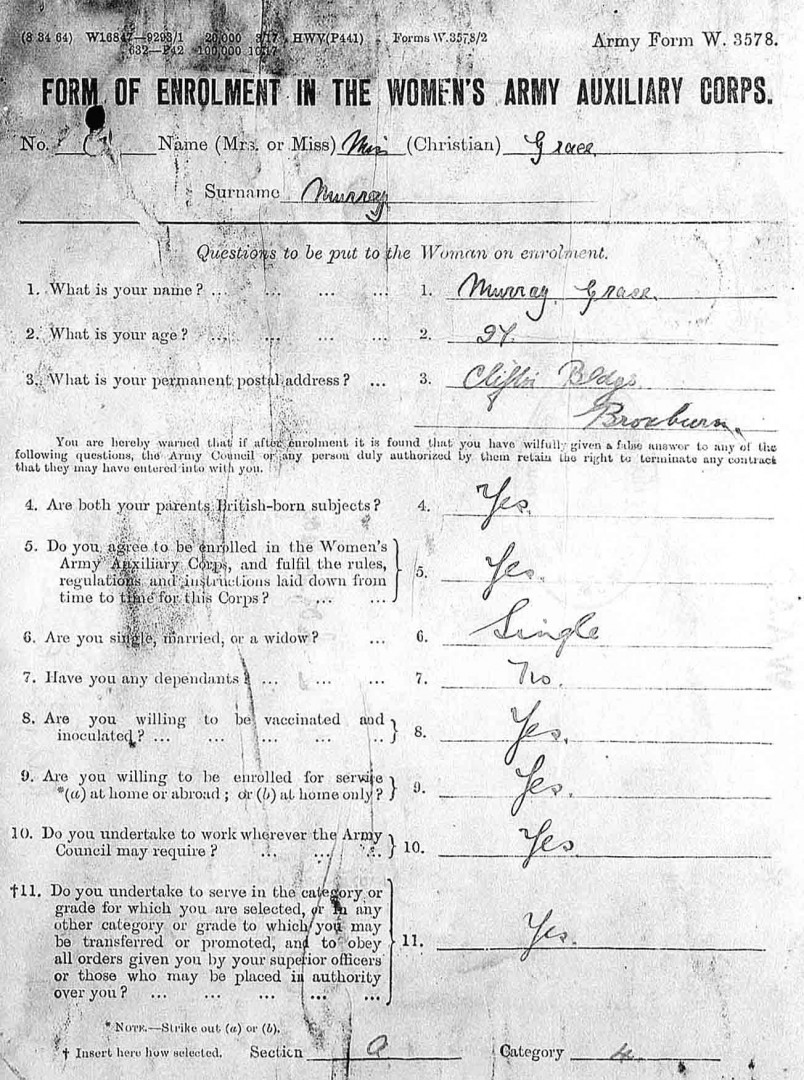 (8 34 64) W16847—9293/1 20,000 3/17 HWV(P441) Forms W.3578/2
632—P42 100,000 10/17
Army Form W. 3578.
FORM OF ENROLMENT IN THE WOMEN'S ARMY AUXILIARY CORPS.
No. Name (Mrs. or Miss) Miss (Christian) Grace
Surname Murray
Questions to be put to the Woman on enrolment.
1. What is your name? ... ... ... ... 1. Murray Grace.
2. What is your age? ... ... ... ... 2.
3. What is your permanent postal address? ... 3. Clifton Bldgs
Broxburn.
You are hereby warned that if after enrolment it is found that you have wilfully given a false answer to any of the
following questions, the Army Council or any person duly authorized by them retain the right to terminate any contract
that they may have entered into with you.
4. Are both your parents British-born subjects? 4. Yes.
5. Do you agree to be enrolled in the Women's
Army Auxiliary Corps, and fulfil the rules,
regulations and instructions laid down from
time to time for this Corps? ... ... 5. Yes.
6. Are you single, married, or a widow? ... 6. Single
7. Have you any dependants? ... ... ... 7. No.
8. Are you willing to be vaccinated and
inoculated? ... ... ... ... ... 8. Yes.
9. Are you willing to be enrolled for service
*(a) at home or abroad; or (b) at home only? 9. Yes.
10. Do you undertake to work wherever the Army
Council may require? ... ... ... 10. Yes
†11. Do you undertake to serve in the category or
grade for which you are selected, or in any
other category or grade to which you may
be transferred or promoted, and to obey
all orders given you by your superior officers
or those who may be placed in authority
over you? ... ... ... ... ... 11. Yes.
* NOTE.—Strike out (a) or (b).
† Insert here how selected. Section a Category 4.